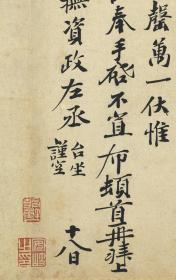 罄萬一伏惟
奉手啟不宣 布頓首再拜上
撫資政左丞 台坐
謹空
十八日